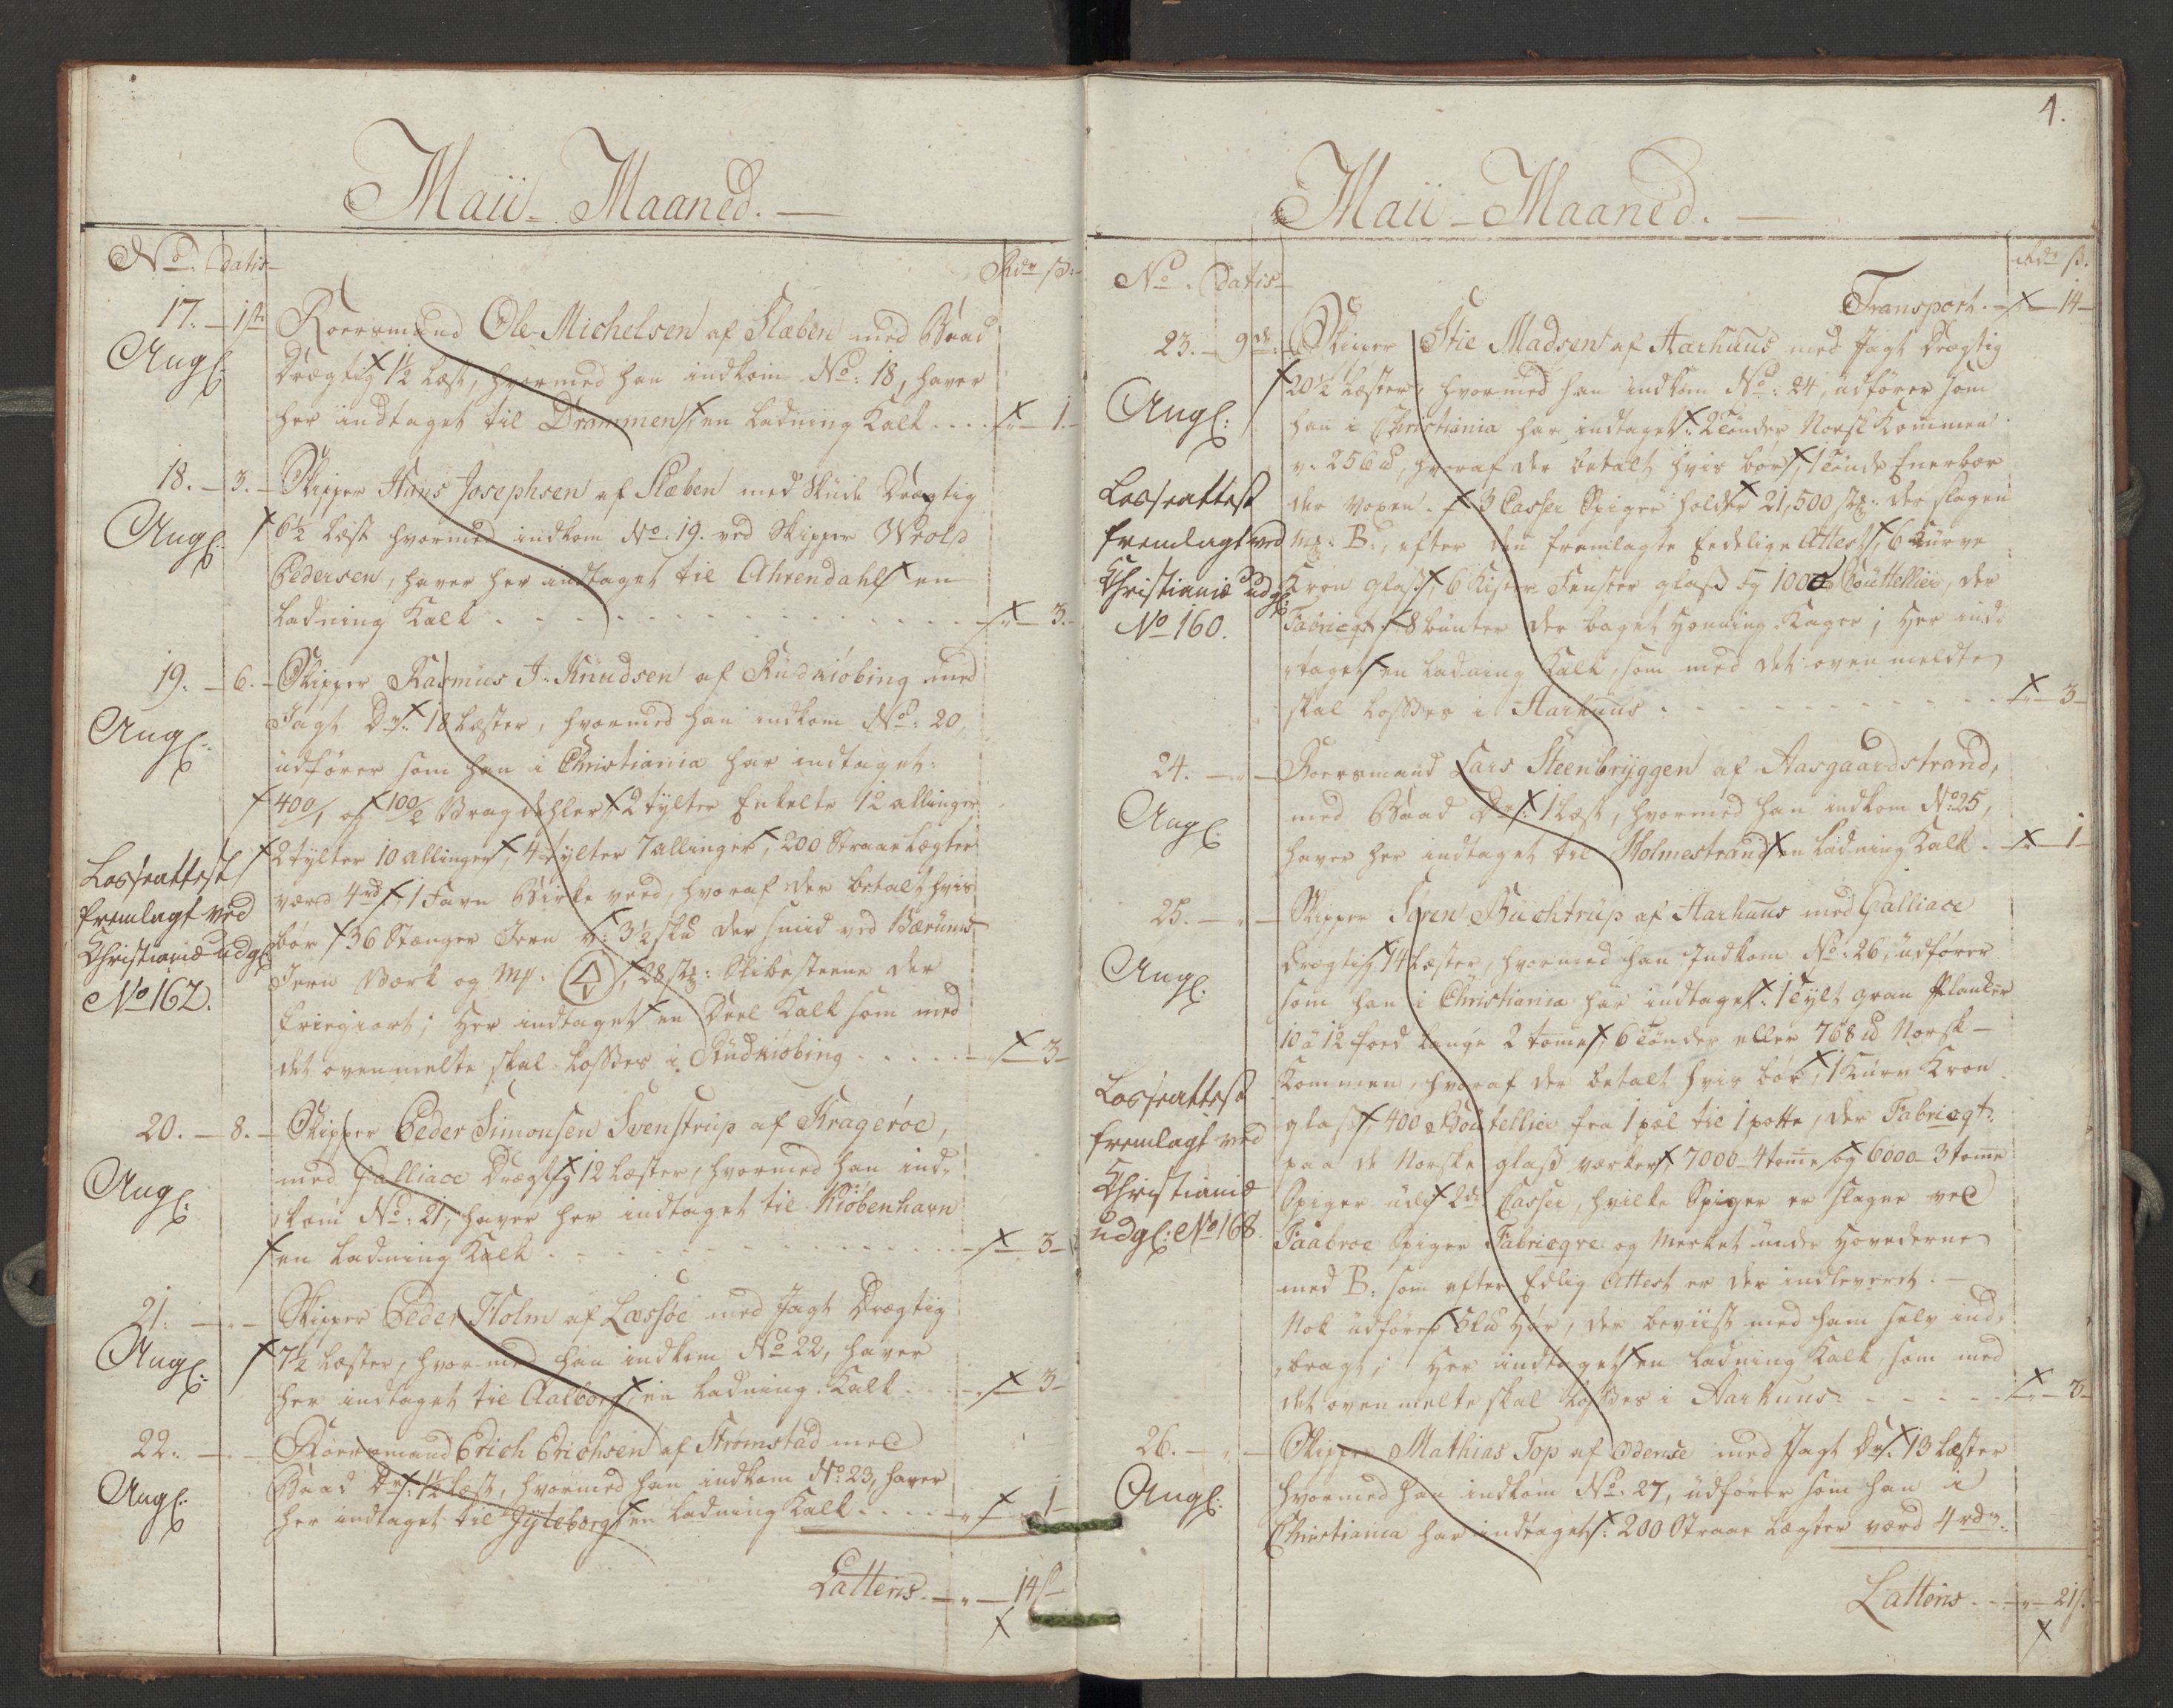 Maii Maaned.
No. Datis Rdr ß:
17. 1ste Roersmand Ole Michelsen af Slæben med Baad
Angl: Drægtig 1½ Læst, hvormed han indkom No: 18, haver
her indtaget til Drammen, en Ladning Kalk .... " 1.
18. 3. Skipper Hans Josephsen af Slæben med Skude Drægtig
Angl: 6½ Læst hvormed indkom No. 19. ved Skipper Wrold
Pedersen, haver her indtaget til Ahrendahl en
Ladning Kalk " 3.
19. 6. Skipper Rasmus J. Knudsen af Rudkiøbing med
Angl: Jagt Dr: 18 Læster, hvormed han indkom No: 20,
udfører som han i Christiania har indtaget:
400/1 og 100/2 Vragdehler, 2 tylter Enkelte 12 allinger
2 tylter 10 allinger, 4 tylter 7 allinger, 200 Straae Lægter
Losseattest
fremlagt ved
Christianiæ udgl:
No 162.
værd 4 rd, 1 Favn Birke veed, hvoraf der betalt hvis
bør, 36 Stænger Jern v: 3½ sk℔ der smid ved Bærums
Jern Værk og mp: 4, 28 stk: Slibesteene der
; her indtaget en Deel Kalk som med
det ovenmelte skal losses i Rudkiøbing " 3
20. 8. Skipper Peder Simonsen Svenstrup af Kragerøe,
Angl: med Galliace Drægtig 12 Læster, hvormed han ind-
kom No: 21, haver her indtaget til Kiøbenhavn
en Ladning Kalk " 3
21. " Skipper Peder Holm af Læssøe med Jagt Drægtig
Angl: 7½ Læster, hvormed han indkom No 22, haver
her indtaget til Aalborg, en Ladning Kalk " 3
22. " Roersmand Erich Erichsen af Strømstad med
Angl: Baad Dr: 1½ Læst, hvormed han indkom No: 23, haver
her indtaget til Gyteborg en Ladning Kalk " 1
Latteris " 14 ß
4.
Maii Maaned.
No. Datis Rdr ß.
Transport " 14
23. 9de: Skipper Stie Madsen af Aarhuus med Jagt Drægtig
20½ Læster, hvormed han indkom No: 24, udfører som
Angl: han i Christiania har indtaget: 2 Tønder Norsk Kommen
v: 256 ℔, hvoraf der betalt hvis bør, 1 Tønde Enerbær
Losseattest
fremlagt ved
Christianiæ udgl:
No 160.
der voxen. 3 Casser Spiger holder 21,500 stk: der slagen
mp: B:, efter den fremlagte Eedelige Attest, 6 Kurve
Kron glass, 6 Kister Fenster glass og 1000 Bouttellier, der
Fabriqt. 8 bunter der baget Honning Kager; Her ind-
taget en Ladning Kalk, som med det ovenmeldte
skal losses i Aarhuus " 3
24. " Roersmand Lars Steenbryggen af Aasgaardstrand,
Angl: med Baad Dr: 1 Læst, hvormed han indkom No: 25,
haver her indtaget til Holmestrand en Ladning Kalk. " 1
25. " Skipper Søren Buchtrup af Aarhuus med Galliace
Angl: drægtig 14 Læster, hvormed han Indkom No: 26, udfører
som han i Christiania har indtaget: 1 Tylt gran Planker
10 à 12 foed lange 2 tomer, 6 Tønder eller 768 ℔ Norsk
Kommen, hvoraf der betalt hvis bør, 1 Kurv Kron
Losseattest
fremlagt ved
Christianiæ
udgl: No 168.
glass, 400 Boutellier fra 1 pæl til 1 potte, der Fabriqt:
paa de Norske glass værker, 7000 4 tome og 6000 3 tome
Spiger udi 2de Casser, hvilke Spiger er slagne ved
Faabroe Spiger Fabriqve og Merket under Hovederne
med B: som efter Edlig Attest er der indleveret.
Nok udfører Hør, der beviist med ham selv ind-
bragt; Her indtaget en Ladning Kalk, som med
det ovenmelte skal losses i Aarhuus " 3
26. " Skipper Mathias Top af Odense med Jagt Dr: 13 Læster
Angl: hvormed han indkom No: 27, udfører som han i
Christiania har indtaget: 200 Straae Lægter værd 4 rdr.
Latteris " 21 ß.